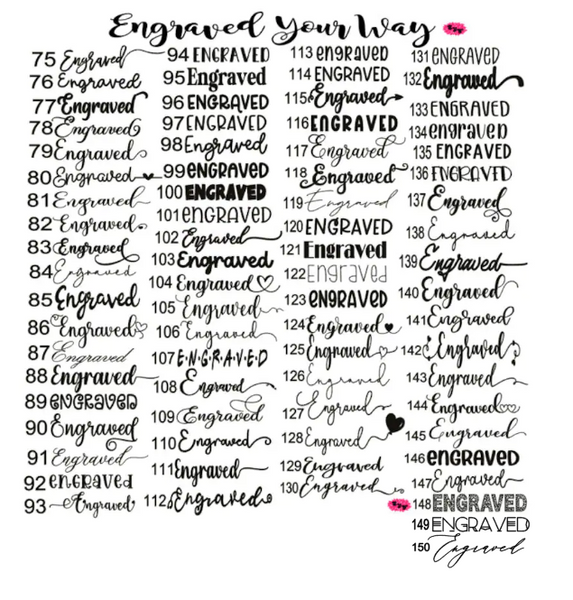 Engraved Your Way
75 Engraved
76 Engraved
77 Engraved
78 Engraved
79 Engraved
80 Engraved
81 Engraved
82 Engraved
83 Engraved
84 Engraved
85 Engraved
86 Engraved
87 Engraved
88 Engraved
89 ENGRAVED
90 Engraved
91 Engraved
92 engraved
93 Engraved
94 ENGRAVED
95 Engraved
96 ENGRAVED
97 ENGRAVED
98 Engraved
99 ENGRAVED
100 ENGRAVED
101 ENGRAVED
102 Engraved
103 Engraved
104 Engraved
105 Engraved
106 Engraved
107 E·N·G·R·A·V·E·D
108 Engraved
109 Engraved
110 Engraved
111 Engraved
112 Engraved
113 engraved
114 ENGRAVED
115 Engraved
116 ENGRAVED
117 Engraved
118 Engraved
119 Engraved
120 ENGRAVED
121 Engraved
122 Engraved
123 ENGRAVED
124 Engraved
125 Engraved
126 Engraved
127 Engraved
128 Engraved
129 Engraved
130 Engraved
131 ENGRAVED
132 Engraved
133 ENGRAVED
134 engraved
135 ENGRAVED
136 ENGRAVED
137 Engraved
138 Engraved
139 Engraved
140 Engraved
141 Engraved
142 Engraved
143 Engraved
144 Engraved
145 Engraved
146 ENGRAVED
147 Engraved
148 ENGRAVED
149 ENGRAVED
150 Engraved